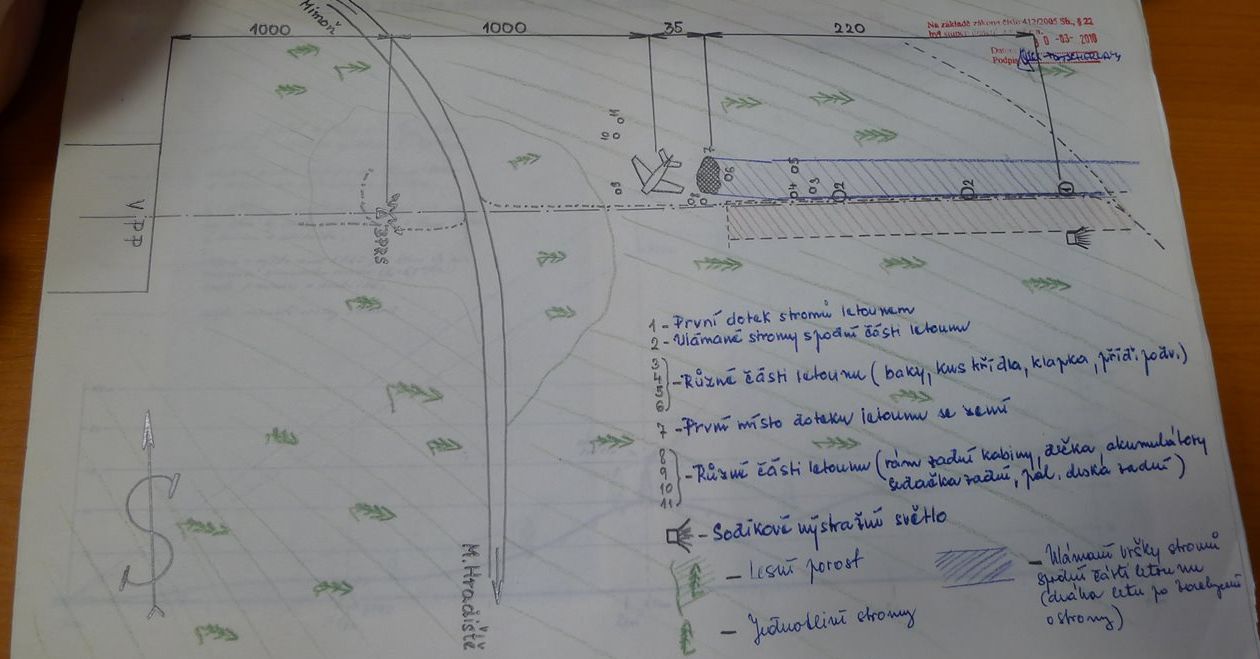 Mimoň
1000
1000
35
220
Na základě zákona číslo 412/2005 Sb., § 22
0 -03- 2010
Podpis
11
10
9
7
6
8
5
4
3
2
2
1
VPP
BPRS
1 - První dotek stromů letounem
2 - Ulámané stromy spodní části letounu
3
4
5
6
- Různé části letounu (baky, kus křídla, klapka, příď. podv.)
7 - První místo doteku letounu se zemí
8
9
10
11
- Různé části letounu (rám zadní kabiny, akumulátory
sedačka zadní, pal. deska zadní)
- Sodíkové výstražné světlo
- Lesní porost
- Jednotlivé stromy
- Ulámané vršky stromů
spodní části letounu
(dráha letu po
o stromy)
M. Hradiště
S